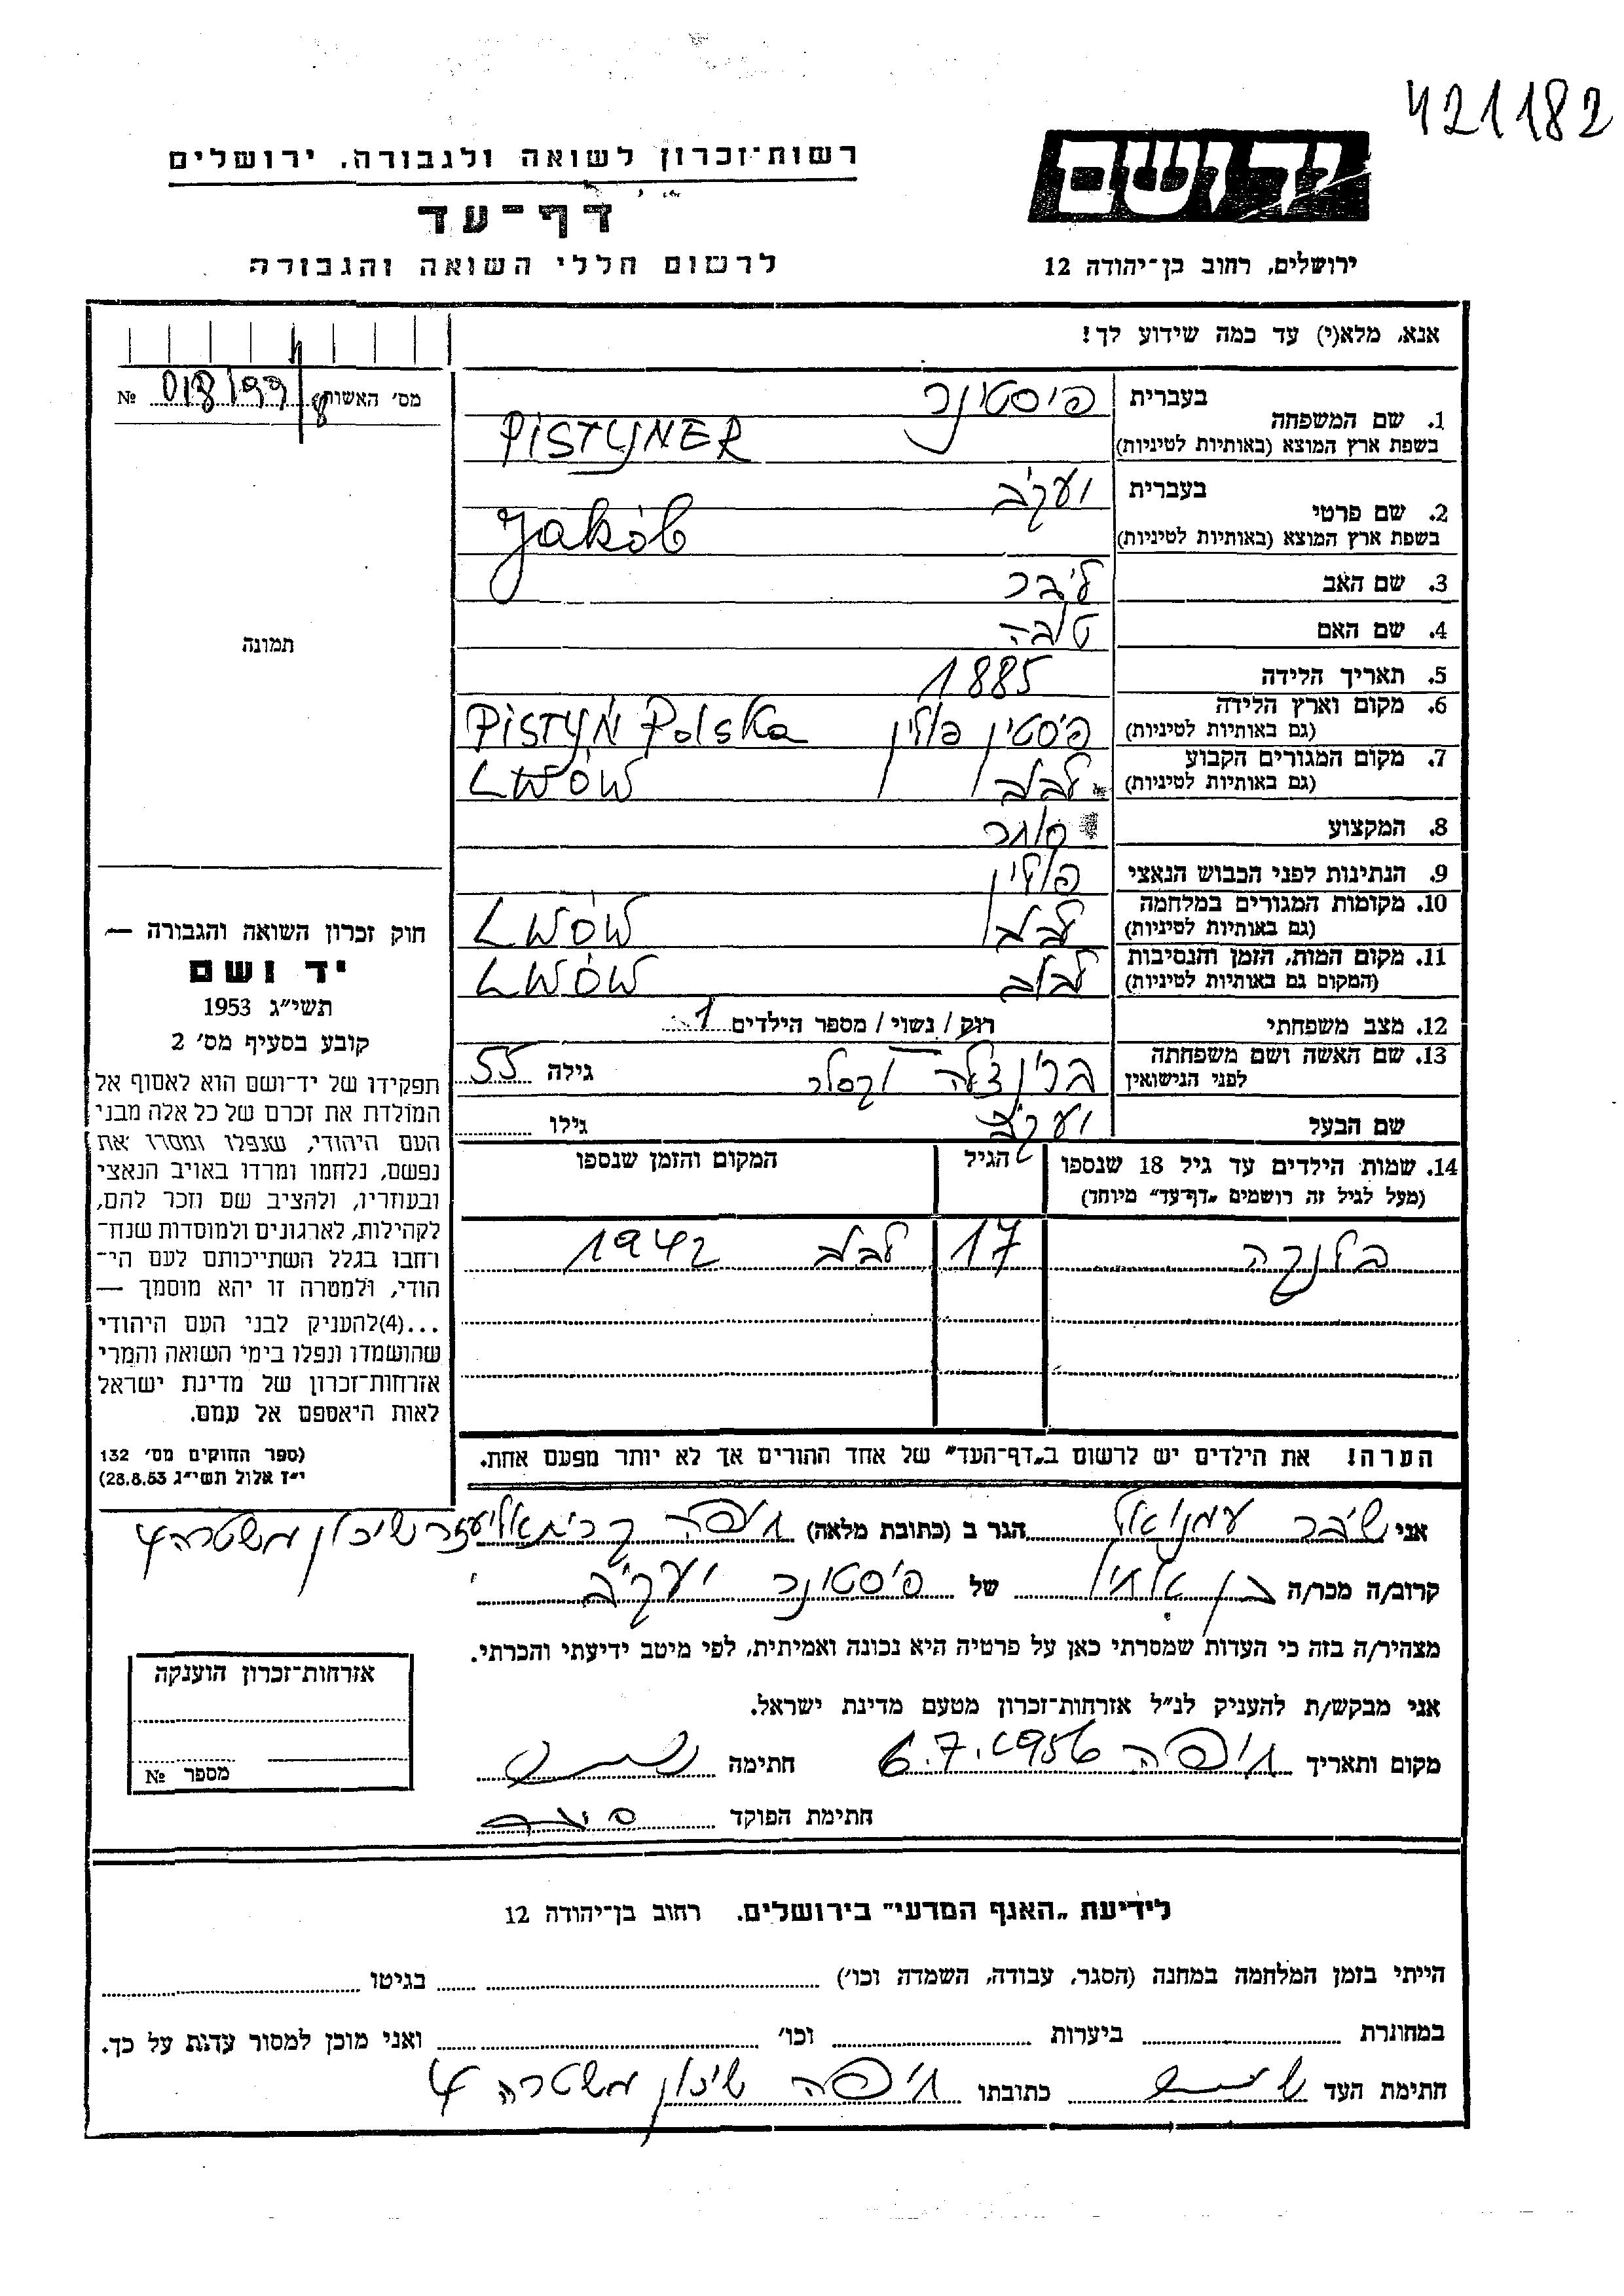 421182
יד ושם
ירושלים, רחוב בן־יהודה 12
רשות־זכרון לשואה ולגבורה, ירושלים
דף־עד
לרשום חללי השואה והגבורה
אנא, מלא(י) עד כמה שידוע לך!
מס׳ האשות №
1. שם המשפחה
בעברית פיסטינר
בשפת ארץ המוצא (באותיות לטיניות) PISTYNER
2. שם פרטי
בעברית יעקב
בשפת ארץ המוצא (באותיות לטיניות) Jakób
3. שם האב ליבר
4. שם האם טובה
5. תאריך הלידה 1885
6. מקום וארץ הלידה
(גם באותיות לטיניות) פיסטין פולין PISTYŃ Polska
7. מקום המגורים הקבוע
(גם באותיות לטיניות) לבוב LWÓW
8. המקצוע סוחר
9. הנתינות לפני הכבוש הנאצי פולין
10. מקומות המגורים במלחמה
(גם באותיות לטיניות) לבוב LWÓW
11. מקום המות, הזמן והנסיבות
(המקום גם באותיות לטיניות) לבוב LWÓW
12. מצב משפחתי רוק / נשוי / מספר הילדים 1
13. שם האשה ושם משפחתה
לפני הנישואין גילה 55
שם הבעל יעקב גילו
14. שמות הילדים עד גיל 18 שנספו
(מעל לגיל זה רושמים „דף־עד״ מיוחד)
הגיל
המקום והזמן שנספו
בלנקה 17 לבוב 1942
הערה! את הילדים יש לרשום ב„דף־העד״ של אחד ההורים אך לא יותר מפעם אחת.
תמונה
חוק זכרון השואה והגבורה —
יד ושם
תשי״ג 1953
קובע בסעיף מס׳ 2
תפקידו של יד־ושם הוא לאסוף אל
המולדת את זכרם של כל אלה מבני
העם היהודי, שנפלו ומסרו את
נפשם, נלחמו ומרדו באויב הנאצי
ובעוזריו, ולהציב שם וזכר להם,
לקהילות, לארגונים ולמוסדות שנח־
רחבו בגלל השתייכותם לעם הי־
הודי, ולמטרה זו יהא מוסמך —
...(4)להעניק לבני העם היהודי
שהושמדו ונפלו בימי השואה והמרי
אזרחות־זכרון של מדינת ישראל
לאות היאספם אל עמם.
(ספר החוקים מס׳ 132
י״ז אלול תשי״ג 28.8.53)
אני שיבר עמנואל הגר ב (כתובת מלאה) חיפה קרית אליעזר שיכון משטרה 4
קרוב/ה מכר/ה בן אחיו של פיסטינר יעקב
מצהיר/ה בזה כי העדות שמסרתי כאן על פרטיה היא נכונה ואמיתית, לפי מיטב ידיעתי והכרתי.
אני מבקש/ת להעניק לנ״ל אזרחות־זכרון מטעם מדינת ישראל.
מקום ותאריך חיפה 6.7.1956 חתימה
חתימת הפוקד
אזרחות־זכרון הוענקה
מספר №
לידיעת „האגף המדעי״ בירושלים, רחוב בן־יהודה 12
הייתי בזמן המלחמה במחנה (הסגר, עבודה, השמדה וכו׳) בגיטו
במחתרת ביערות וכו׳ ואני מוכן למסור עדות על כך.
חתימת העד כתובתו חיפה שיכון משטרה 4